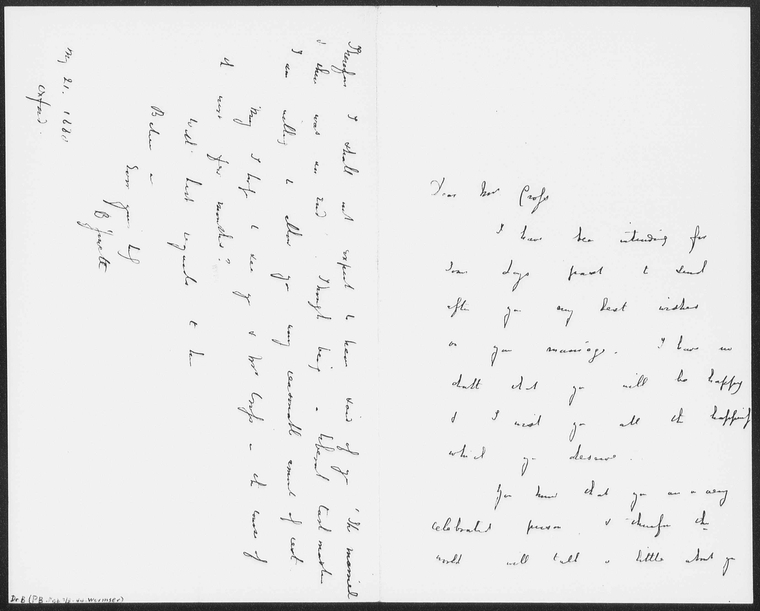 Dear Mrs Cross
I have been intending for
some days past to send
after you my best wishes
on your marriage. I have no
doubt that you will be happy
& I wish you all the happiness
which you deserve.
You know that you are a very
celebrated person & therefore the
world will talk a little about you
Therefore I shall not expect to hear said of you 'He married
& there was an end'. Though being a liberal task master
I am willing to allow you any reasonable amount of rest.
May I hope to see you & Mr Cross in the course of
a few months?
With best regards to him
Believe me
Ever yours truly
B Jowett
May 21. 1880
Oxford.
Dr B (PB